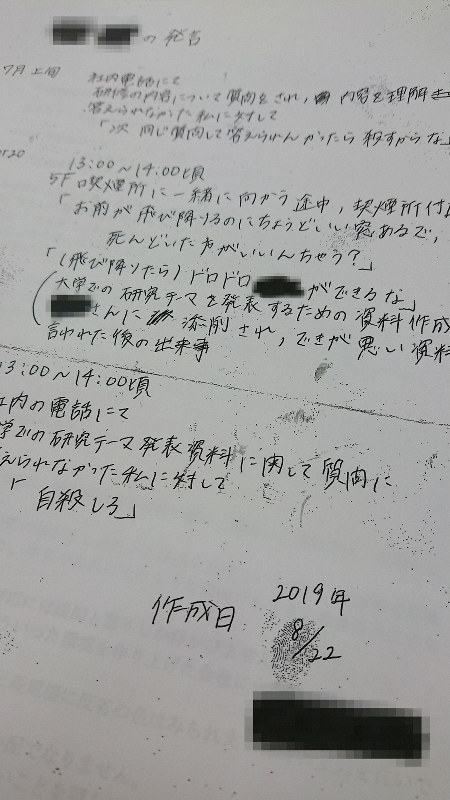 の発言
7月上旬
社内電話にて
研修の内容について質問をされ、内容を理解
答えられなかった私に対して
「次 同じ質問して答えられんかったら殺すからな」
13:00〜14:00頃
5F 喫煙所に一緒に向かう途中、喫煙所付近
「お前が飛び降りるのにちょうどいい窓あるで、
死んどいた方がいいんちゃう?」
「(飛び降りたら)ドロドロ
ができるな」
(大学での研究テーマを発表するための資料作成
さんに 添削され、できが悪い資料
言われた後の出来事
13:00〜14:00頃
社内の電話にて
学での研究テーマ発表資料に関して質問に
えられなかった私に対して
「自殺しろ」
作成日 2019年
8/22